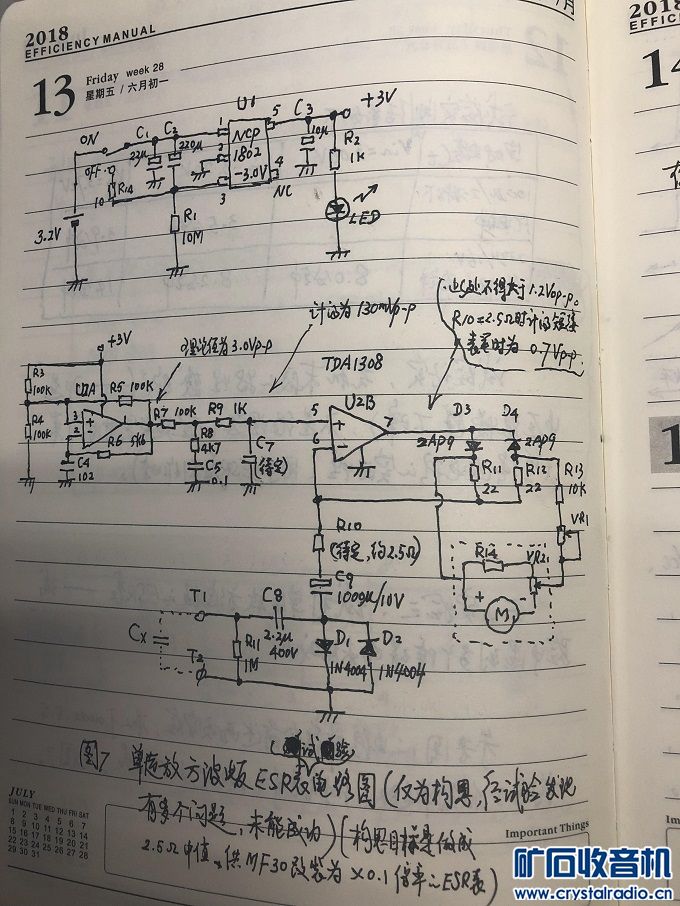 2018
EFFICIENCY MANUAL
13
Friday week 28
星期五 / 六月初一
月
2018
EFFICIE
U1
C3
+3V
ON
C1
C2
1
5
22μ
220μ
NCP
1802
-3.0V
10μ
R2
1K
OFF
R14
10
2
3
4
NC
LED
3.2V
R1
10M
此处不得大于1.2Vp-p。
R10=2.5Ω时计算短接
表笔时为0.7Vp-p
计算为130mVp-p
理论值为3.0Vp-p
TDA1308
+3V
R3
100K
U2A
R5 100K
R7 100K
R9 1K
5
U2B
7
D3
D4
2AP9
2AP9
R4
100K
3
2
1
R6 5K6
R8
4K7
C7
(待定)
6
R11
22
R12
22
R13
10K
C4
102
C5
0.1
VR1
R10
(待定,约2.5Ω)
R14
VR2
C9
1000μ/10V
+
M
-
T1
C8
2.2μ
400V
Cx
R11
1M
D1
D2
1N4004
1N4004
T2
(试验)
图7 单运放方波版ESR表电路图(仅为构思,经试验发现
有多个问题,未能成功)(构思目标是做成
2.5Ω中值、供MF30改装为×0.1倍率的ESR表)
JULY
SUN MON TUE WED THU FRI SAT
1 2 3 4 5 6 7
8 9 10 11 12 13 14
15 16 17 18 19 20 21
22 23 24 25 26 27 28
29 30 31
Important Things
矿石收音机
www.crystalradio.cn